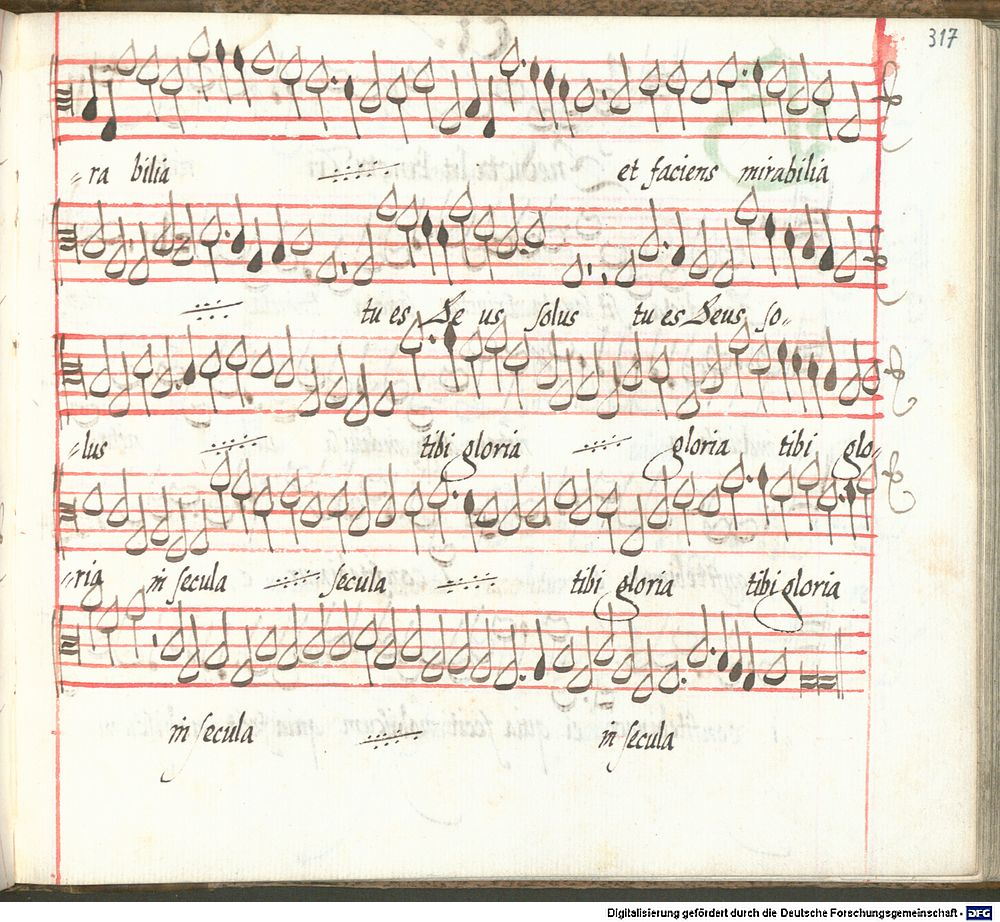 317
-ra bilia et faciens mirabilia
tu es Deus solus tu es Deus so-
-lus tibi gloria gloria tibi glo-
-ria in secula secula tibi gloria tibi gloria
in secula in secula
Digitalisierung gefördert durch die Deutsche Forschungsgemeinschaft - DFG